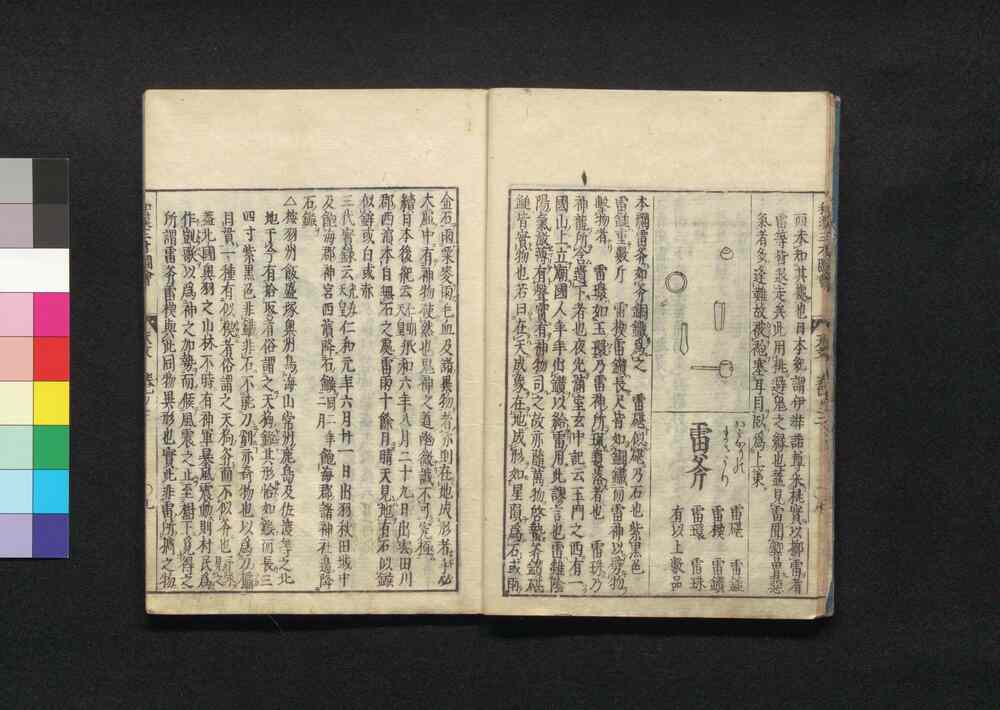 而未知其處也日本紀謂伊弉諾尊朱桃實以擲雷者
雷等皆退走矣此用桃避鬼之縁也蓋見雷聞聲胃惡
氣者多逢難故
雷斧
雷碪 雷鎚
雷楔 雷鑽
雷環 雷珠
有以上數品
本綱雷斧如斧銅鐵爲之 雷碪似碪乃石也紫黒色
雷鎚重數斤 雷楔雷鑽長尺許皆如鋼鐵而雷神以劈物
擊物者 雷環如玉環乃雷神所珮遺落者也 雷珠乃
神龍所含遺下者也夜光滿室玄中記云玉門之西有一
國山上立廟國人年年出鑽以給雷用此謬言也雷雖陰
陽氣激薄有聲實有神物司之故亦隨萬物啓蟄斧鑽碪
鎚皆實物也若曰在天成象在地成形如星隕爲石或雨
金石雨粟麥雨毛血及諸異物者亦則在地成形者
太虚中有神物使然也鬼神之道幽微誠不可究極
續日本後紀云承和六年八月二十九日出羽田川
郡西濱本自無石之處雷雨十餘日晴天見地有石以鏃
似鉾或白或赤
三代實録云天皇仁和元年六月廿一日出羽秋田城中
及飽海郡神宮西濱降石鏃同二年二月飽海郡諸神社邊降
石鏃
△按羽州飯盛塚奧州鳥海山常州鹿島及佐渡等之北
地于今有拾取者俗謂之天狗鏃其形恰如鏃而長三
四寸紫黒色非鐵非石不能刀削亦奇物也以爲刀
目貫一種有似楔者俗謂之天狗斧而不似斧也
蓋北國奧羽之山林不時有神軍暴風震動則村民爲
作凱歌以爲神之加勢而候風震之止至樹下見得之
所謂雷斧雷楔與此同物異形也實此非雷所擲之物